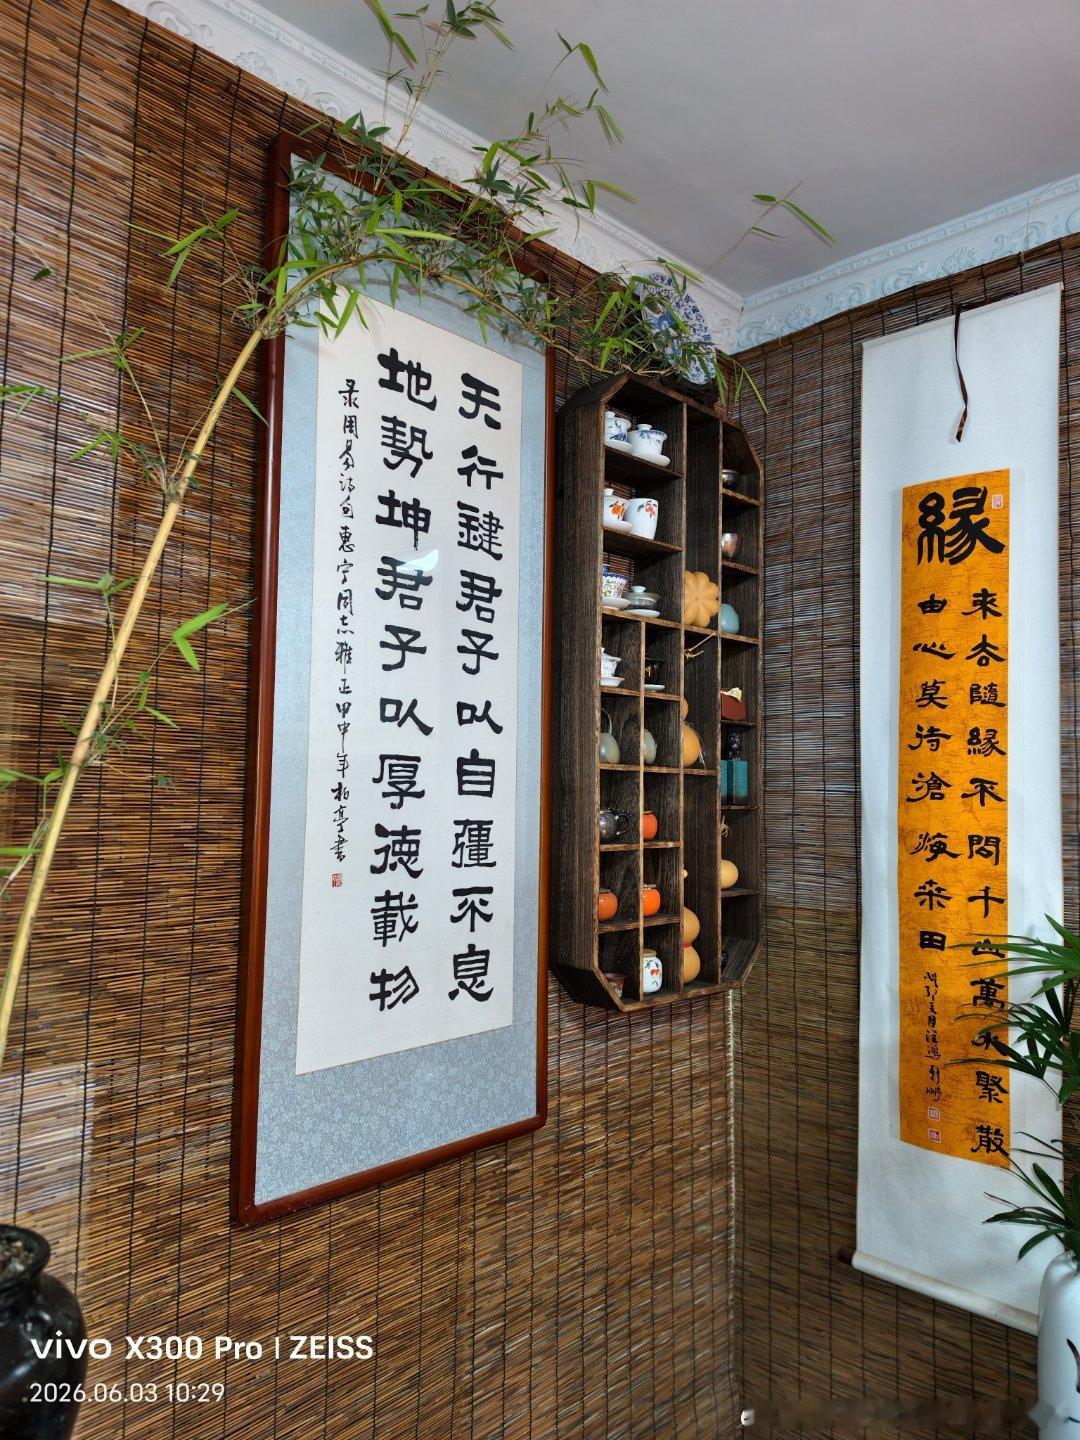 天行鍵君子以自彊不息
地勢坤君子以厚德載物
录周易诗句惠宁同志雅正甲申年柏亭书
緣
来去隨緣不問千山萬水聚散
由心莫待滄海桑田
vivo X300 Pro | ZEISS
2026.06.03 10:29